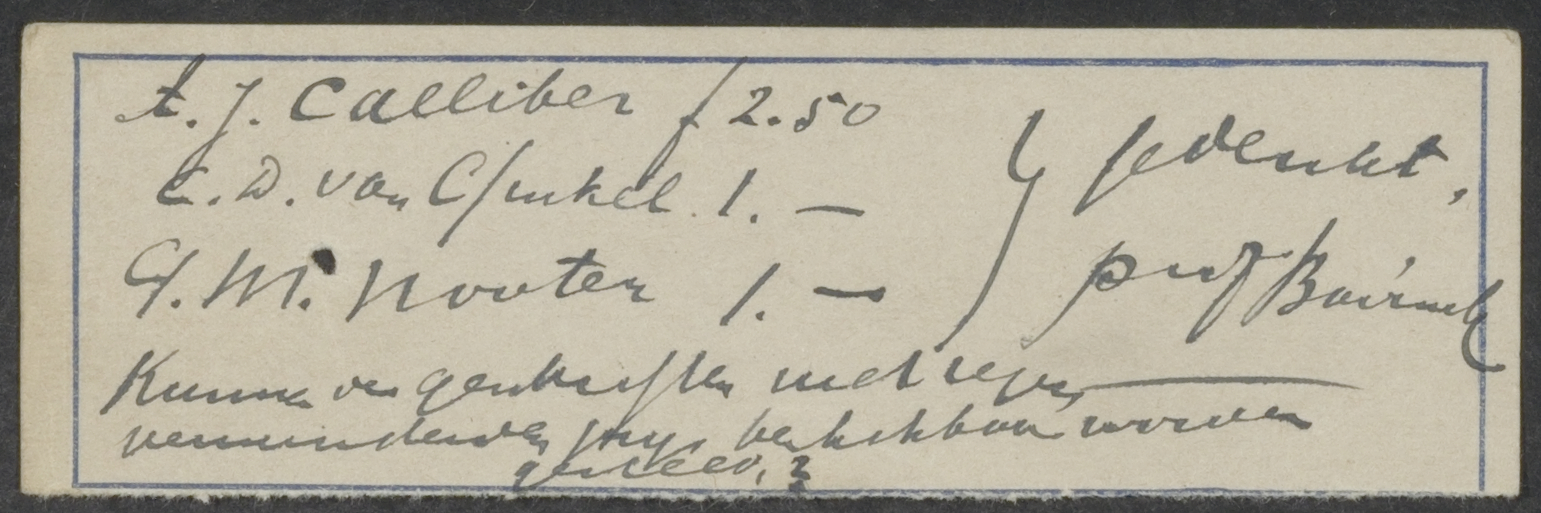 A. J. Calliber f 2.50
C. D. van Ginkel 1. —
G. M. Nooter 1. —
} Gedenkt,
prof
Kunnen de geschriften niet tegen
verminderden prijs beschikbaar worden
gesteld. ?